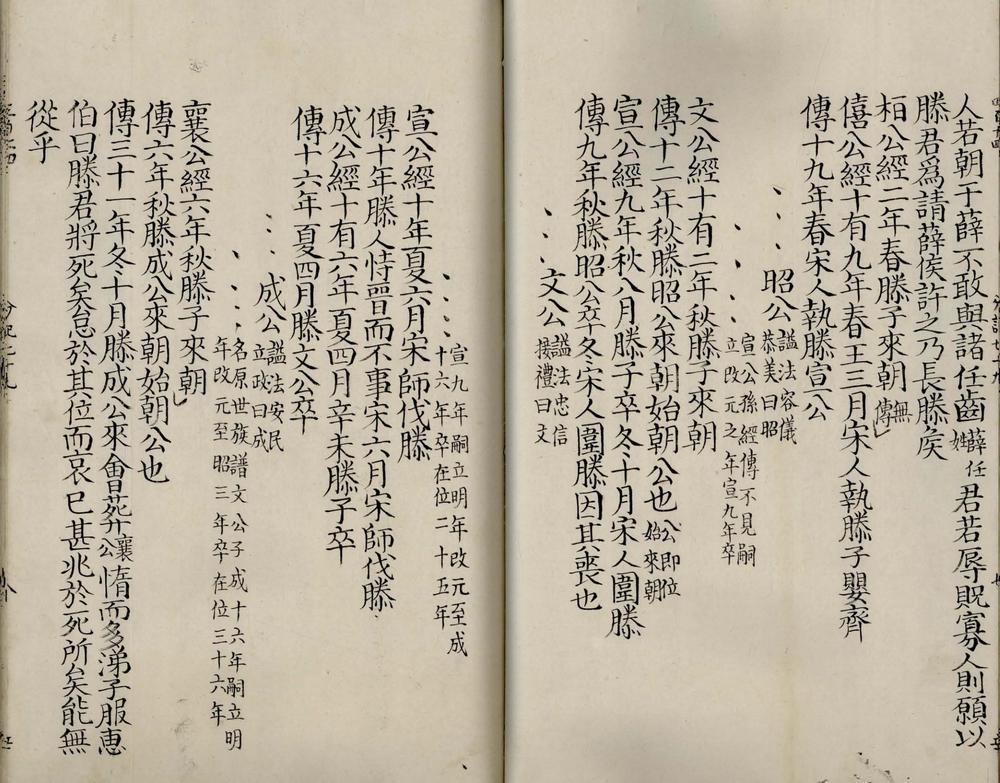 人若朝于薛不敢與諸任齒薛任姓君若辱貺寡人則願以
滕君爲請薛侯許之乃長滕矦
桓公經二年春滕子來朝無傳
僖公經十有九年春王三月宋人執滕子嬰齊
傳十九年春宋人執滕宣公
昭公謚法容儀恭美曰昭
宣公孫經傳不見嗣立改元之年宣九年卒
文公經十有二年秋滕子來朝
傳十二年秋滕昭公來朝始朝公也公即位始來朝
宣公經九年秋八月滕子卒冬十月宋人圍滕
傳九年秋滕昭公卒冬宋人圍滕因其喪也
文公謚法忠信接禮曰文
宣九年嗣立明年改元至成十六年卒在位二十五年
宣公經十年夏六月宋師伐滕
傳十年滕人恃晉而不事宋六月宋師伐滕
成公經十有六年夏四月辛未滕子卒
傳十六年夏四月滕文公卒
成公謚法安民立政曰成
名原世族譜文公子成十六年嗣立明年改元至昭三年卒在位三十六年
襄公經六年秋滕子來朝
傳六年秋滕成公來朝始朝公也
傳三十一年冬十月滕成公來會葬襄公惰而多涕子服惠
伯曰滕君將死矣怠於其位而哀已甚兆於死所矣能無
從乎